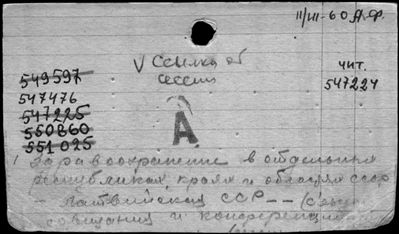 11/III-60 А.Ф.
V Ссылка об
сессии
чит.
547224
549597
547476
547225
550860
551025
А
1 Здравоохранение в отдельных
республиках, краях и областях СССР
- Латвийская ССР -- (Съезды
совещания и конференции